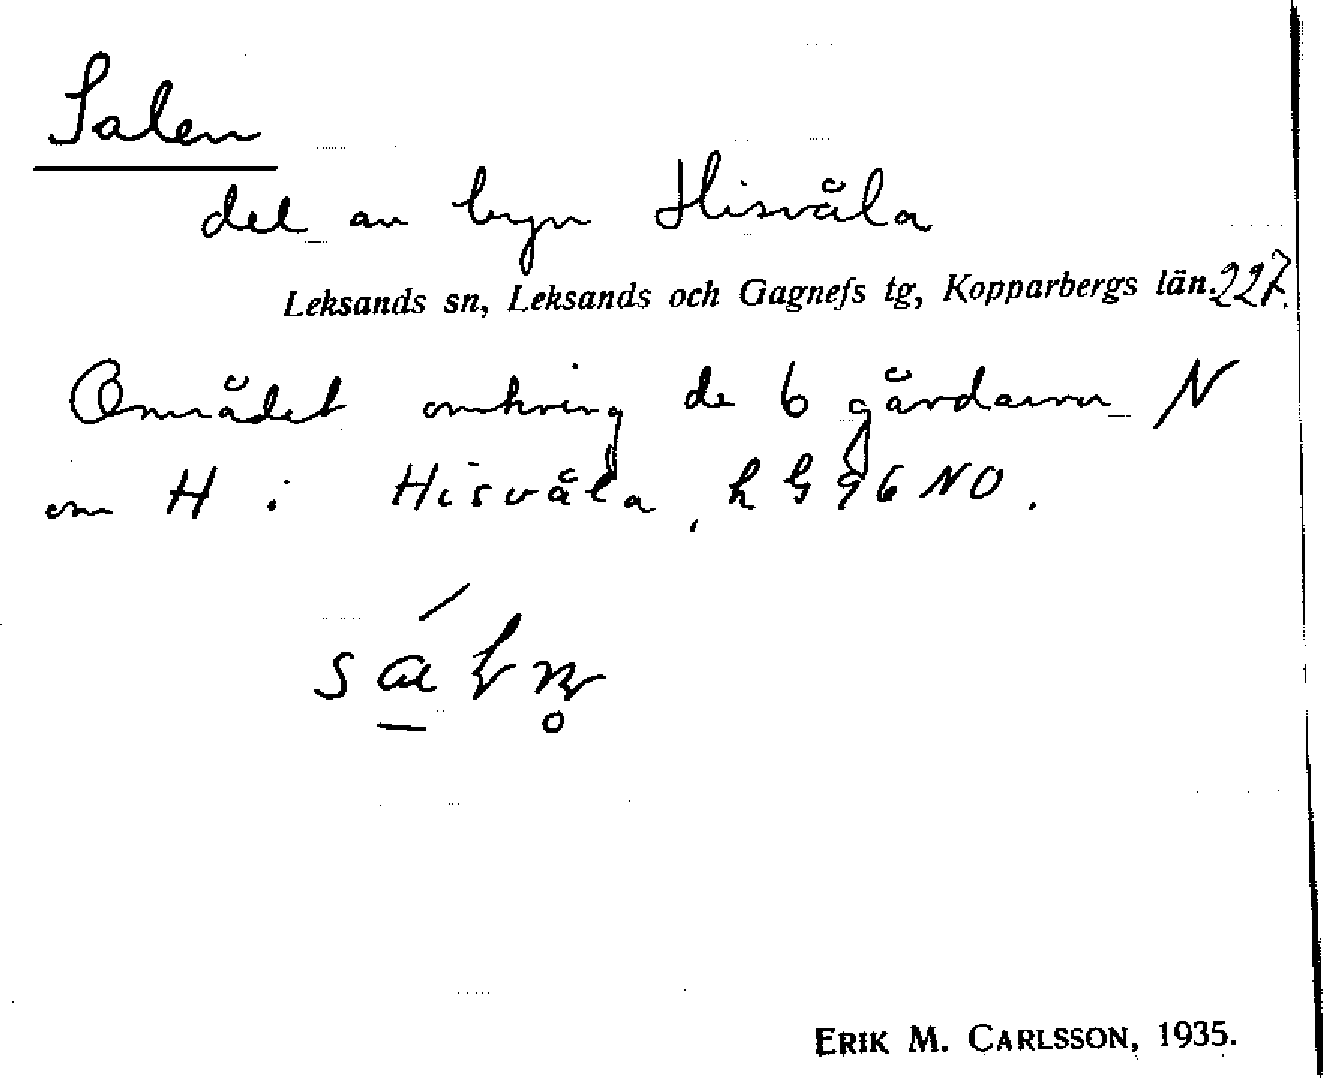 Salen
del av byn Hisvåla
Leksands sn, Leksands och Gagnefs tg, Kopparbergs län. 227.
Området omkring de 6 gårdarna N
om H i Hisvåla, 96 NO.